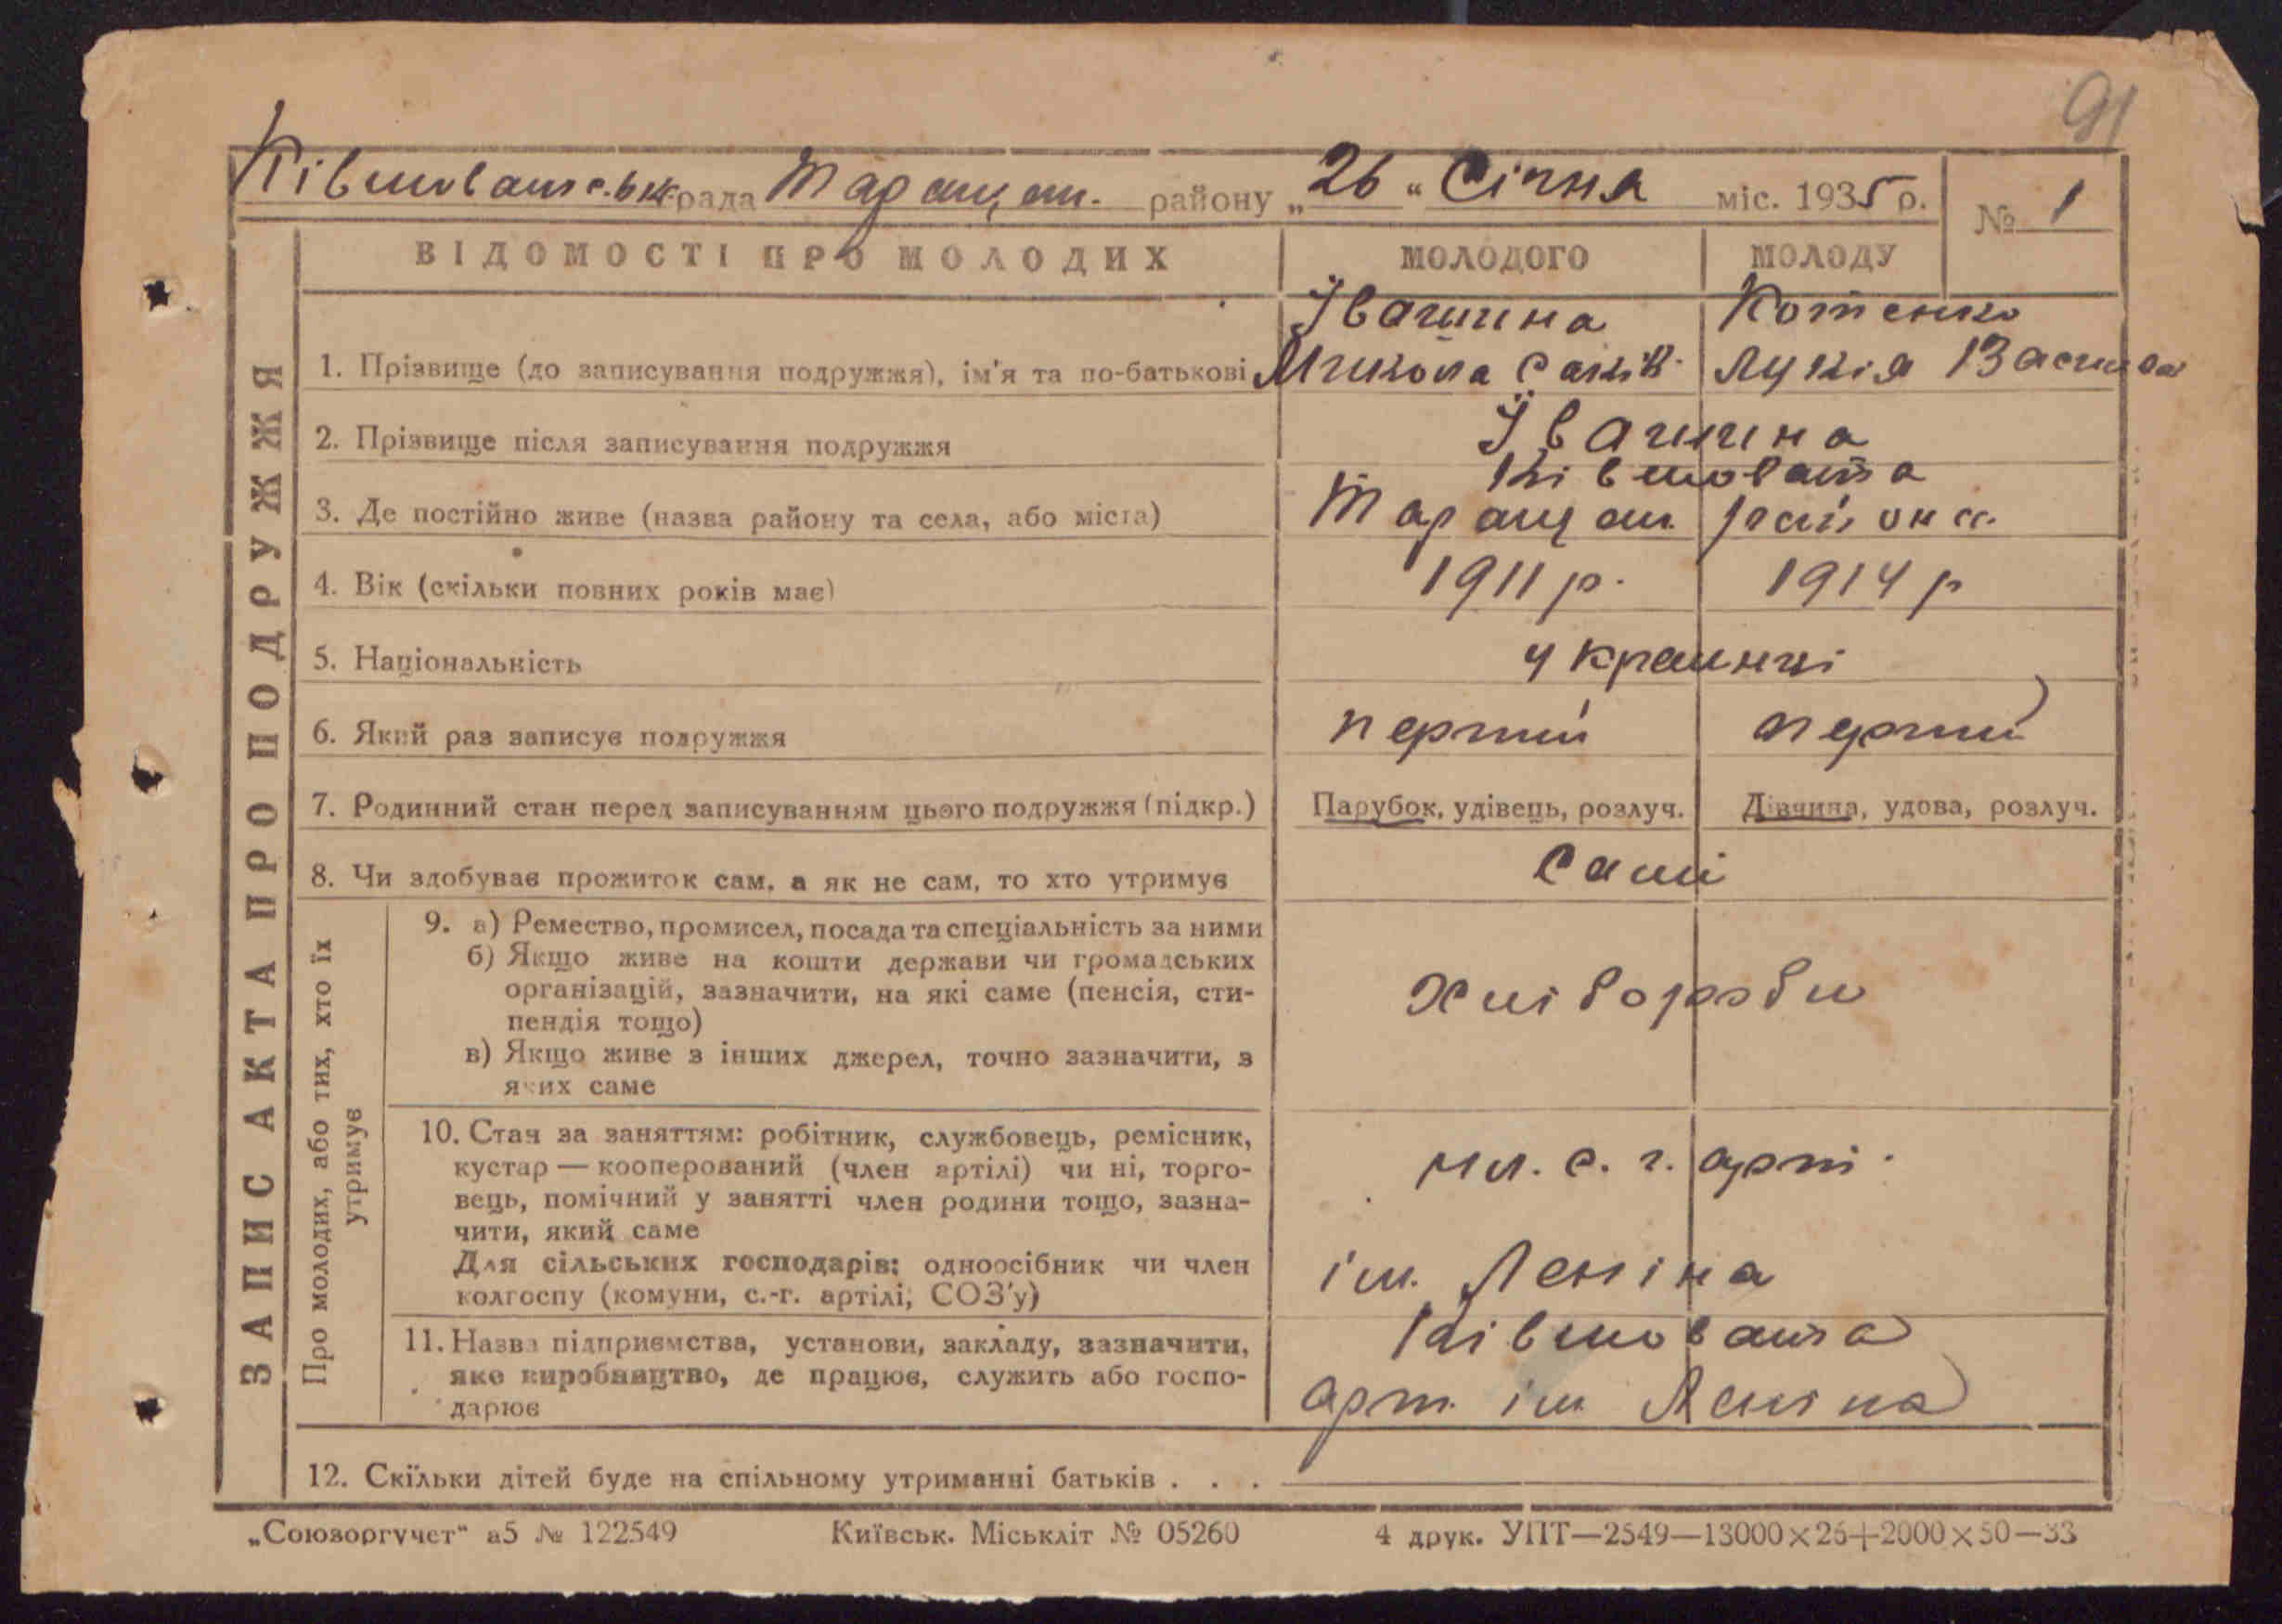 91
Ківшоватськ рада Таращан. району „26“ Січня міс. 1935 р. № 1
ВІДОМОСТІ ПРО МОЛОДИХ МОЛОДОГО МОЛОДУ
ЗАПИС АКТА ПРО ПОДРУЖЖЯ
Івашина Котенко
1. Прізвище (до записування подружжя), ім'я та по-батькові Микола Лукія
2. Прізвище після записування подружжя Івашина
Ківшовата
3. Де постійно живе (назва району та села, або міста) Таращан. района
4. Вік (скільки повних років має) 1911 р. 1914 р
5. Національність украинці
6. Який раз записує подружжя перший перший
7. Родинний стан перед записуванням цього подружжя (підкр.) Парубок, удівець, розлуч. Дівчина, удова, розлуч.
8. Чи здобуває прожиток сам, а як не сам, то хто утримує Самі
Про молодих, або тих, хто їх
утримує
9. а) Ремество, промисел, посада та спеціальність за ними
б) Якщо живе на кошти держави чи громадських
організацій, зазначити, на які саме (пенсія, сти-
пендія тощо)
в) Якщо живе з інших джерел, точно зазначити, з
яких саме
Хлібороби
10. Стан за заняттям: робітник, службовець, ремісник,
кустар — кооперований (член артілі) чи ні, торго-
вець, помічний у занятті член родини тощо, зазна-
чити, який саме
Для сільських господарів: одноосібник чи член
колгоспу (комуни, с.-г. артілі, СОЗ'у)
чл. с. г. арт.
ім. Леніна
11. Назва підприємства, установи, закладу, зазначити,
яке виробництво, де працює, служить або госпо-
дарює
Ківшовата
арт. ім Леніна
12. Скільки дітей буде на спільному утриманні батьків . . .
„Союзоргучет“ а5 № 122549 Київськ. Міськліт № 05260 4 друк. УПТ—2549—13000×26+2000×50—33